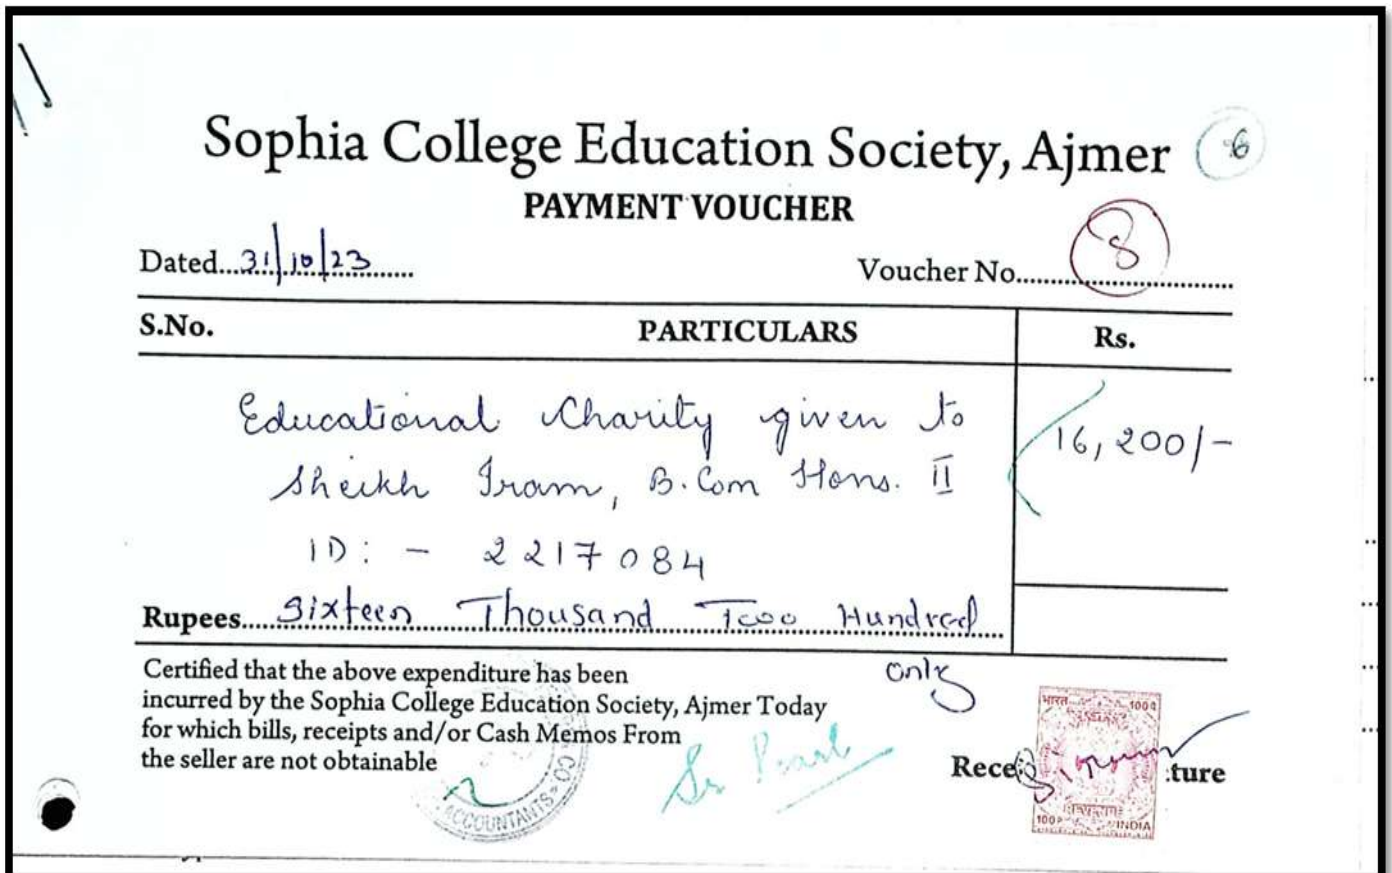 Sophia College Education Society, Ajmer 6
PAYMENT VOUCHER
Dated...31/10/23............ Voucher No.....8....................
S.No. PARTICULARS Rs.
Educational Charity given to 16,200/-
Sheikh Iram, B.Com Hons. II
ID: - 2217084
Rupees....Sixteen Thousand Two Hundred
Only
Certified that the above expenditure has been
incurred by the Sophia College Education Society, Ajmer Today
for which bills, receipts and/or Cash Memos From
the seller are not obtainable
Sr Pearl
CO.
ACCOUNTANTS
भारत 100
Rece ture
REVENUE
100P INDIA